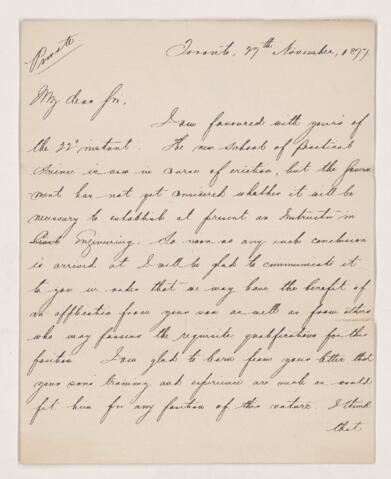 Private
Toronto, 27th November, 1877
My dear Sir,
I am favoured with yours of
the 22d instant. The new school of practical
Science is now in course of erection, but the Govern
ment has not yet considered whether it will be
necessary to establish at present an Instructor in
Engineering. So soon as any such conclusion
is arrived at I will be glad to communicate it
to you in order that we may have the benefit of
an application from your son as well as from others
who may possess the requisite qualifications for the
position. I am glad to learn from your letter that
your son's training and experience are such as would
fit him for any position of this nature. I think
that